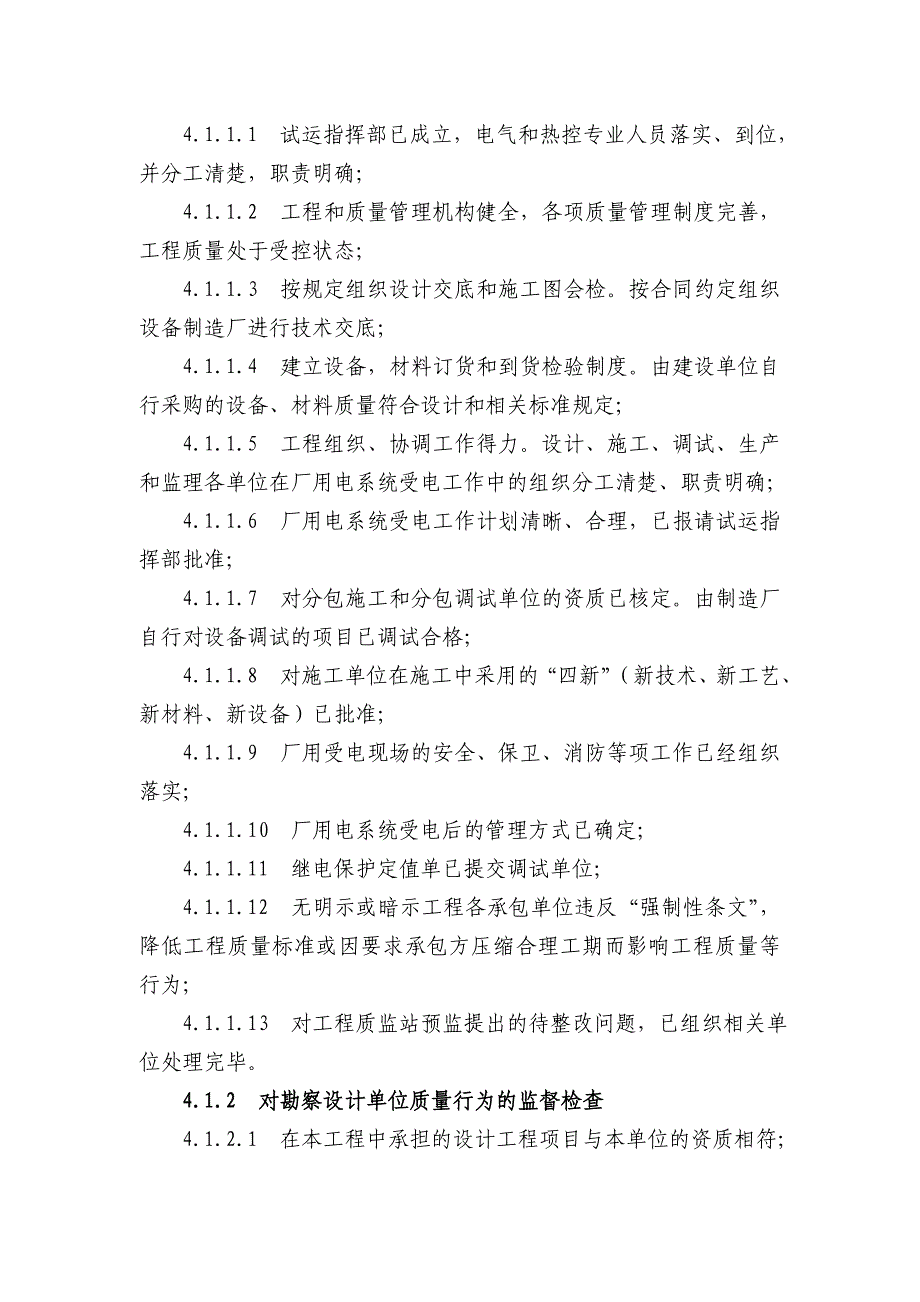 4.1.1.1 试运指挥部已成立，电气和热控专业人员落实、到位，
并分工清楚，职责明确；
4.1.1.2 工程和质量管理机构健全，各项质量管理制度完善，
工程质量处于受控状态；
4.1.1.3 按规定组织设计交底和施工图会检。按合同约定组织
设备制造厂进行技术交底；
4.1.1.4 建立设备，材料订货和到货检验制度。由建设单位自
行采购的设备、材料质量符合设计和相关标准规定；
4.1.1.5 工程组织、协调工作得力。设计、施工、调试、生产
和监理各单位在厂用电系统受电工作中的组织分工清楚、职责明确；
4.1.1.6 厂用电系统受电工作计划清晰、合理，已报请试运指
挥部批准；
4.1.1.7 对分包施工和分包调试单位的资质已核定。由制造厂
自行对设备调试的项目已调试合格；
4.1.1.8 对施工单位在施工中采用的“四新”（新技术、新工艺、
新材料、新设备）已批准；
4.1.1.9 厂用受电现场的安全、保卫、消防等项工作已经组织
落实；
4.1.1.10 厂用电系统受电后的管理方式已确定；
4.1.1.11 继电保护定值单已提交调试单位；
4.1.1.12 无明示或暗示工程各承包单位违反“强制性条文”，
降低工程质量标准或因要求承包方压缩合理工期而影响工程质量等
行为；
4.1.1.13 对工程质监站预监提出的待整改问题，已组织相关单
位处理完毕。
4.1.2 对勘察设计单位质量行为的监督检查
4.1.2.1 在本工程中承担的设计工程项目与本单位的资质相符；